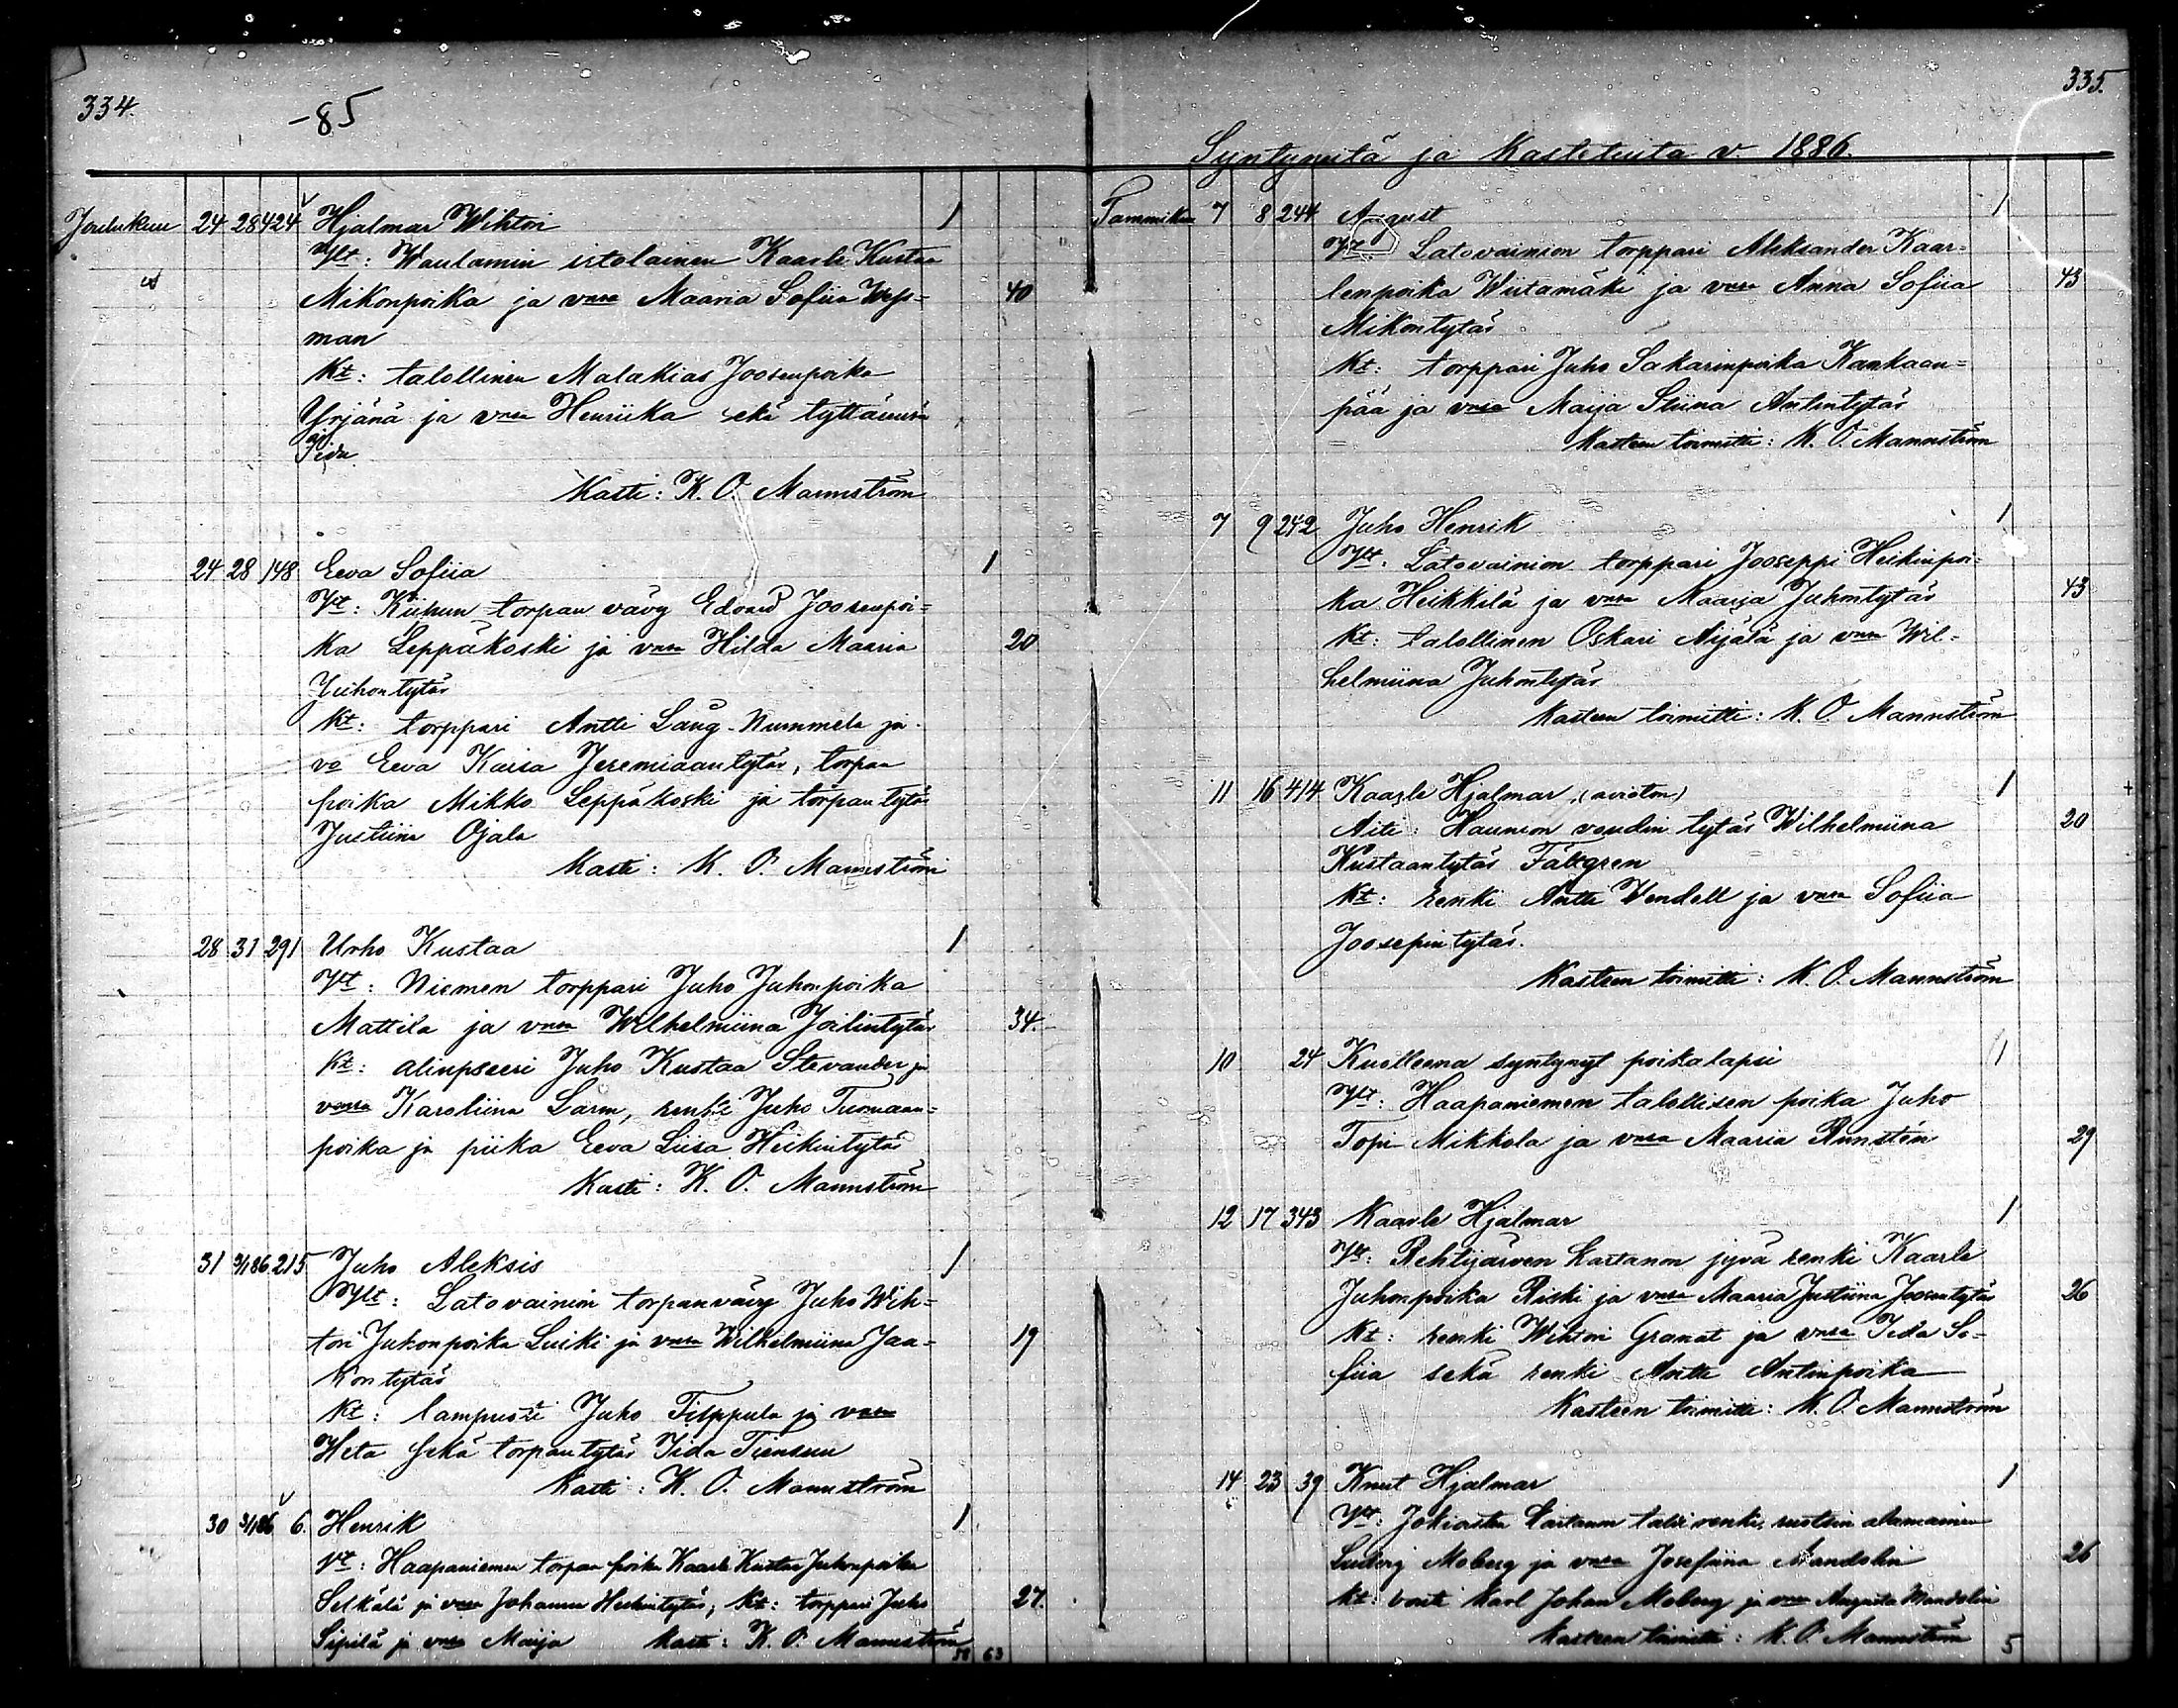 334.
-85
Joulukuu 24 28 424 Hjalmar Wihtori 1
Vt: Waulamin itolainen Kaarle Kustaa
Mikonpoika ja vmsa Maaria Sofiia Wess= 40
man
Kt: talollinen Malakias Joosenpoika
Yrjänä ja vmsa Henriika sekä tyttärensä
Iida
Kasti: K. O. Mannström
24 28 148 Eeva Sofiia 1
Vt: torpan vävy Edvard Joosenpoi=
ka Leppäkoski ja vmsa Hilda Maaria 20
Juhontytär
Kt: torppari Antti Lång-Nummela ja
vo Eeva Kaisa Jeremiaantytär, torpan
poika Mikko Leppäkoski ja torpan tytär
Justiina Ojala
Kasti: K. O. Mannström
28 31 291 Urho Kustaa 1
Vt: Niemen torppari Juho Juhonpoika
Mattila ja vmsa Wilhelmiina Joilintytär 34.
Kt: alinpseeri Juho Kustaa Stevander ja
vmsa Karoliina Larm, renki Juho Tuomaan=
poika ja piika Eeva Liisa Heikintytär
Kasti: K. O. Mannström
31 3/1 86 215 Juho Aleksis 1
Vt: Latovainion torpanvävy Juho Wih=
tori Juhonpoika Luiki ja vmsa Wilhelmiina Jaa= 19
kontytär
Kt: lampuoti Juho Filppula ja vmsa
Heta sekä torpantytär Iida Tiensuu
Kasti: K. O. Mannström
30 3/1 86 6. Henrik 1
Vt: Haapaniemen torpan poika Kaarle Kustaa Juhonpoika
Selkälä ja vmsa Johanna Heikintytär; Kt: torppari Juho 27.
Sipilä ja vmsa Maija Kasti: K. O. Mannström
58 63
335.
Syntyneitä ja Kastetuita v. 1886.
Tammikuu 7 8 244 August 1
Vt Latovainion torppari Aleksander Kaar=
lenpoika Wiitamäki ja vmsa Anna Sofiia 43
Mikontytär
Kt: torppari Juho Sakarinpoika Kankaan=
pää ja vmsa Maija Stiina Antintytär
Kasteen toimitti: K. O. Mannström
7 9 242 Juho Henrik 1
Vt. Latovainion torppari Jooseppi Heikinpoi=
ka Heikkilä ja vmsa Maarija Juhontytär 43
Kt: talollinen Oskari Äijälä ja vmsa Wil=
helmiina Juhontytär
Kasteen toimitti: K. O. Mannström
11 16 414 Kaarle Hjalmar, (avioton) 1
Äiti: Haunion voudin tytär Wilhelmiina 20
Kustaantytär Fältgren
Kt: renki Antti Wendell ja vmsa Sofiia
Joosepin tytär.
Kasteen toimitti: K. O. Mannström
10 24 Kuolleena syntynyt poikalapsi 1
Vt: Haapaniemen talollisen poika Juho
Topi Mikkola ja vmsa Maaria Runstén 29
12 17 343 Kaarle Hjalmar 1
Vt: Rehtijärven Kartanon jyvä renki Kaarle
Juhonpoika Riski ja vmsa Maaria Justiina Joosentytär 26
Kt: renki Wihtori Granat ja vmsa Iida So=
fiia sekä renki Antti Antinpoika
Kasteen toimitti: K. O. Mannström
14 23 39 Knut Hjalmar 1
Vt: Jokioisten Kartanon talli renki, ruotsin alamainen
Ludvig Moberg ja vmsa Josefiina Mandolin 26
Kt: vouti Karl Johan Moberg ja vmsa Augusta Mandolin
Kasteen toimitti: K. O. Mannström 5